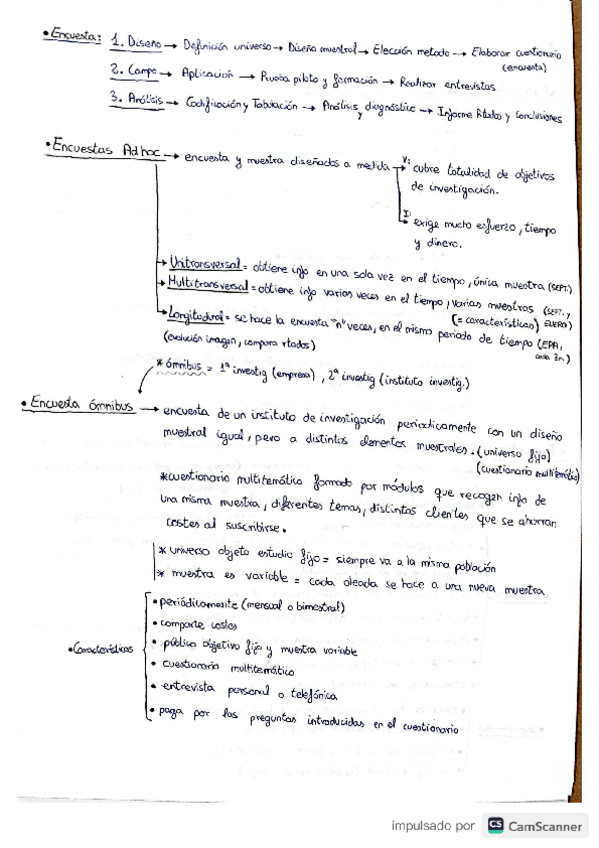 • Encuesta: 1. Diseño → Definición universo → Diseño muestral → Elección metodo → Elaborar cuestionario
(encuesta)
2. Campo → Aplicación → Prueba piloto y formación → Realizar entrevistas
3. Análisis → Codificación y Tabulación → Análisis y diagnóstico → Informe Rtados y Conclusiones
• Encuestas Ad hoc → encuesta y muestra diseñados a medida → V: cubre totalidad de objetivos
de investigación.
I: exige mucho esfuerzo, tiempo
y dinero.
→ Unitransversal = obtiene info en una sola vez en el tiempo, única muestra (SEPT.)
→ Multitransversal = obtiene info varias veces en el tiempo, varias muestras (SEPT. y
(= características) ENERO)
→ Longitudinal = se hace la encuesta "n" veces, en el mismo periodo de tiempo (EPA,
cada 3m)
(evolución imagen, compara rtados)
* ómnibus = 1ª investig (empresa), 2ª investig (instituto investig.)
• Encuesta ómnibus → encuesta de un instituto de investigación periodicamente con un diseño
muestral igual, pero a distintos elementos muestrales. (universo fijo)
(cuestionario multitemático)
* cuestionario multitemático formado por módulos que recogen info de
una misma muestra, diferentes temas, distintos clientes que se ahorran
costes al suscribirse.
* universo objeto estudio fijo = siempre va a la misma población
* muestra es variable = cada oleada se hace a una nueva muestra
• Características
• periódicamente (mensual o bimestral)
• comparte costes
• público objetivo fijo y muestra variable
• cuestionario multitemático
• entrevista personal o telefónica
• paga por las preguntas introducidas en el cuestionario
impulsado por CS CamScanner